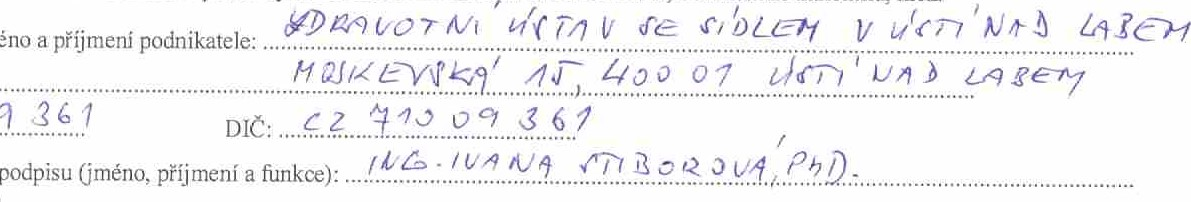 éno a příjmení podnikatele: ZDRAVOTNÍ ÚSTAV SE SÍDLEM V ÚSTÍ NAD LABEM
MOSKEVSKÁ 15, 400 01 ÚSTÍ NAD LABEM
9 361 DIČ: CZ 710 09 361
podpisu (jméno, příjmení a funkce): ING. IVANA STIBOROVÁ, PhD.